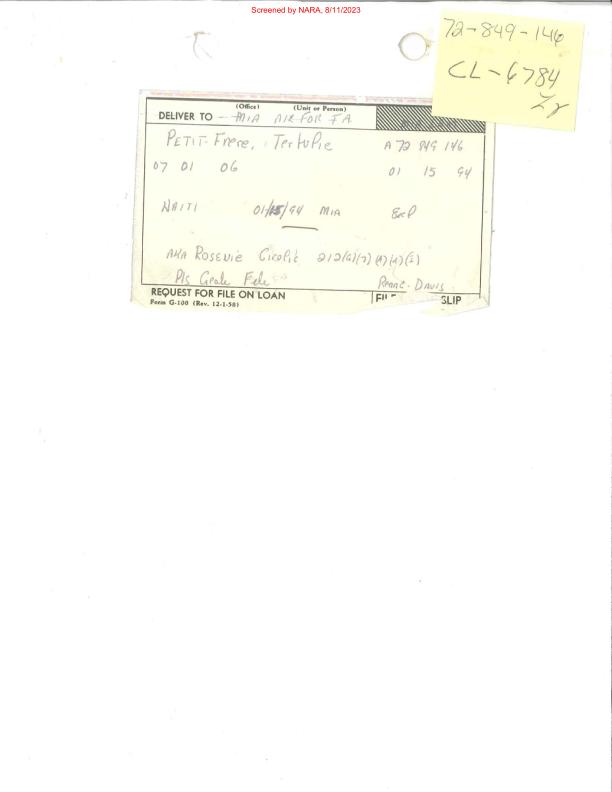 Screened by NARA, 8/11/2023
72-849-146
CL-6784
(Office) (Unit or Person)
DELIVER TO - MIA AIR FOR FA
PETIT-Frere, Tertulie A 72 849 146
07 01 06 01 15 94
HAITI 01/15/94 MIA
AKA Rosevie 212(a)(7)(A)(i)
Pls File
Davis
REQUEST FOR FILE ON LOAN SLIP
Form G-100 (Rev. 12-1-58)